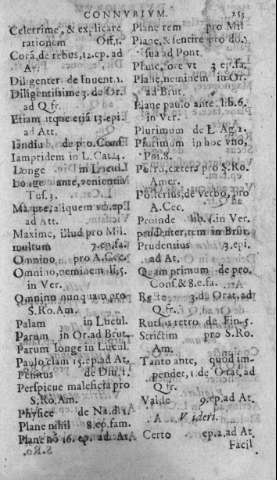 CONNVBIVM.
Celetrime, & explicare
rationem Off.1.
Corá, de rebus, 12.ep. ad
At.
Diligenter de Inuent.1.
Diligentissime 3. de Or.
ad Q.fr.
Etiam atque etiã 13.epi.
ad Att.
Iandiu de pro.Cons.
Iampridem in L.Cat.4.
Longe in Lucul.
Longe ante, venientia
Tus.3.
ad At.
Maxime, illud pro Mil.
multum 7.ep.fa.
Omnino pro A.Cec.
Omnino, neminem li.5.
in Ver.
Omnino nunquam pro
S.Ro.Am.
Palam in Lucul.
Parum in Or.ad Brut.
Parum longe in Lucul.
Paulo, clam 15.ep.ad At.
Penitus de Diu.1.
Perspicue maleficia pro
S.Ro.Am.
Physice de Na.d.1.
Plane nihil 8.ep.fam.
Plane nõ 16. ep. ad At.
Plane rem pro Mil.
Plane, & sentire pro do.
sua ad Pont.
Plane, fore vt 3 ep.fa.
Plane, neminem in Or.
ad Brut.
Plane paulo ante lib.6.
in Ver.
Plurimum de L.Ag.2.
Plurimum in hoc vno,
Phi.8.
Porro, cæters pro S.Ro.
Amer.
Posterius, de verbo, pro
A.Cec.
Proinde lib.1.in Ver.
prudenter, tem in Brut.
Prudentius 3.epi.
ad At.
Quam primum de pro.
Cons. & 8.fa.
3.de Orat. ad
Q.fr.
Rursus retro de Fin.5.
Strictim pro S.Ro.
Am.
Tanto ante, quod im-
pendet, 1 de Orat. ad
Q.fr.
Valde 9.ep.ad At.
A Videri.
Certo ep.2.ad At.
Facil